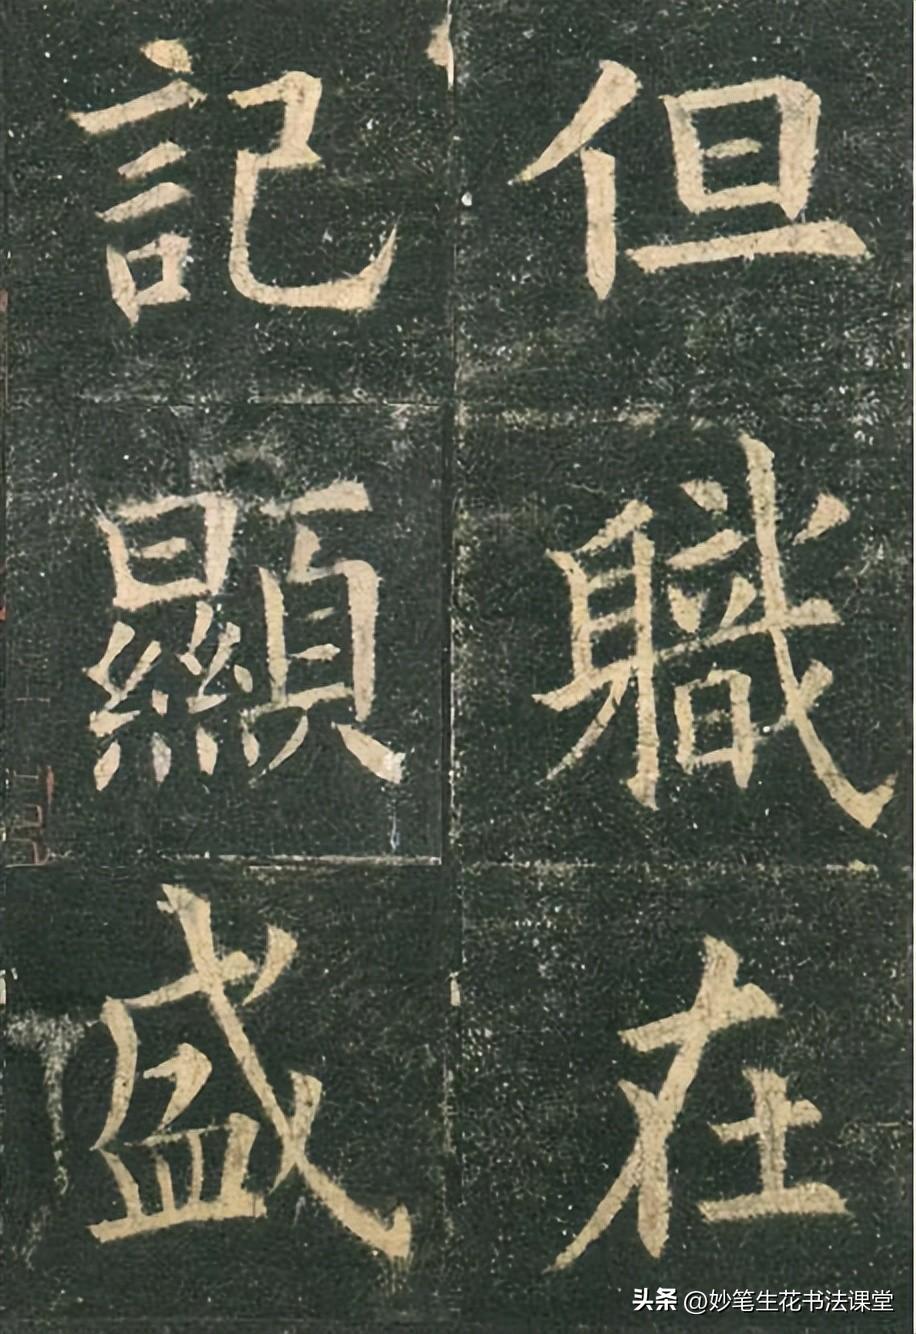 但職在
記顯盛
头条 @妙笔生花书法课堂